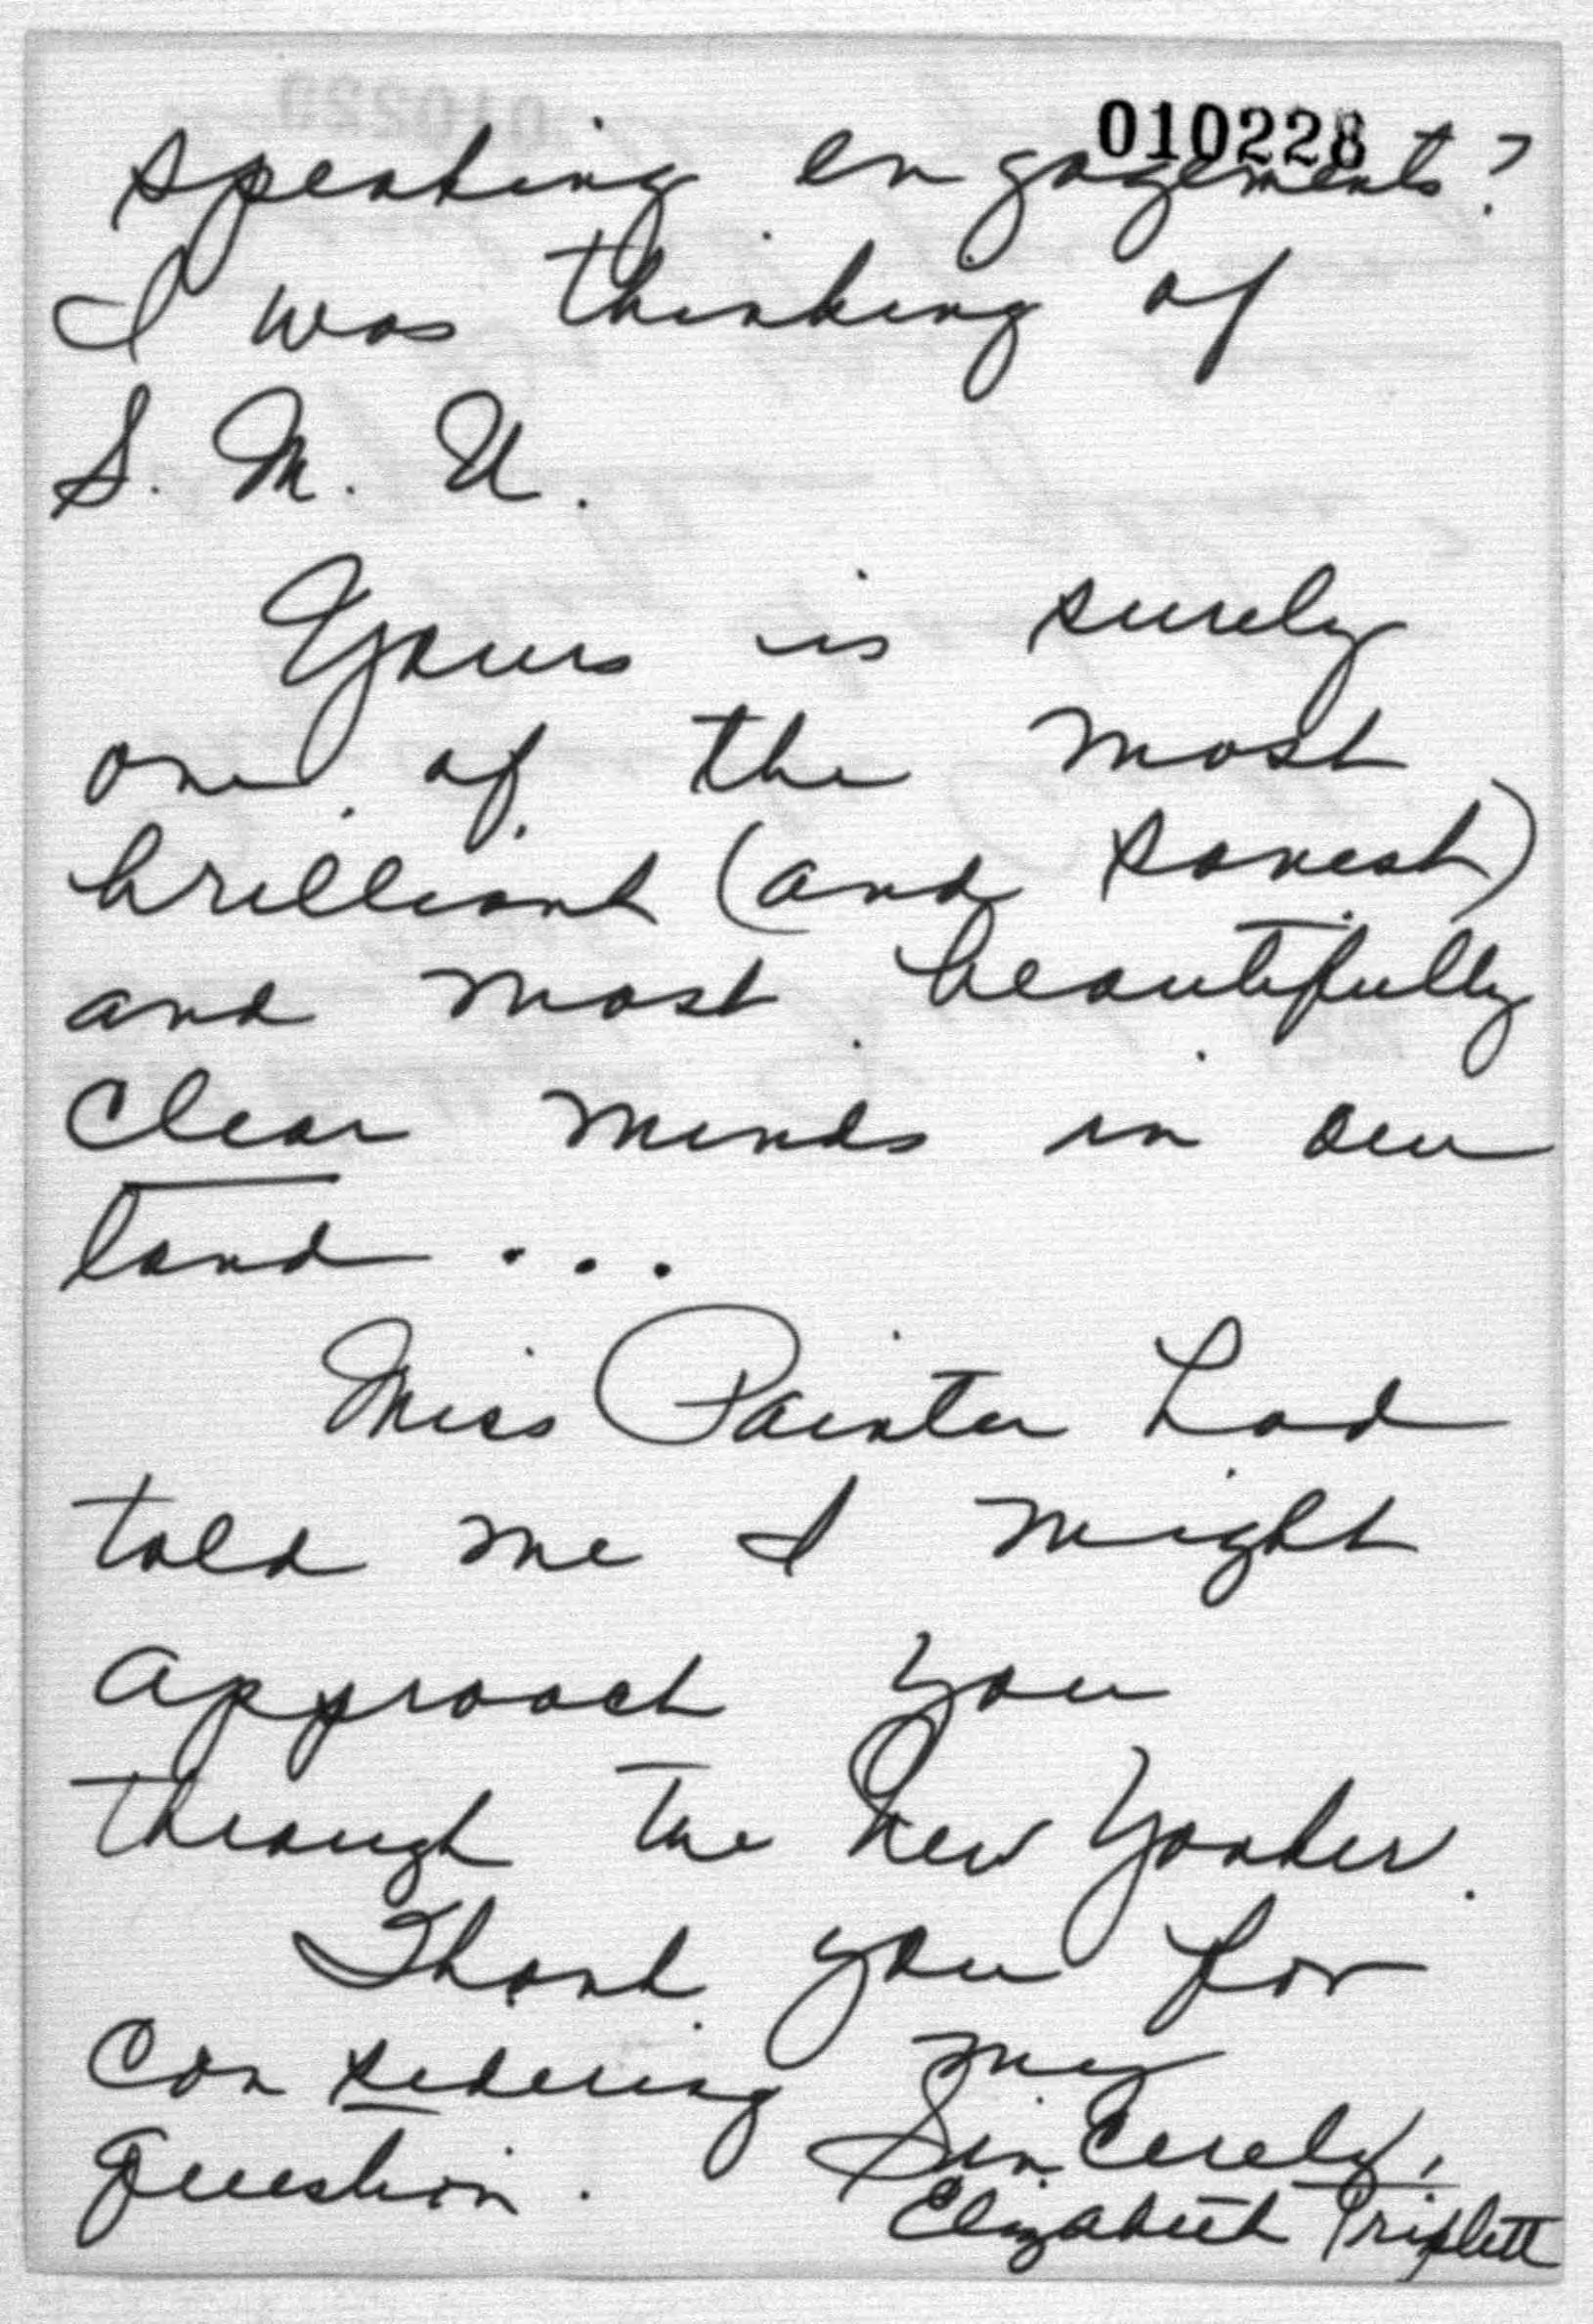 010228
speaking engagements?
I was thinking of
S. M. U.
Yours is surely
one of the most
brilliant (and sanest)
and most beautifully
clear minds in our
land...
Miss Painter had
told me I might
approach you
through The New Yorker.
Thank you for
considering my
question.
Sincerely,
Elizabeth Triplett